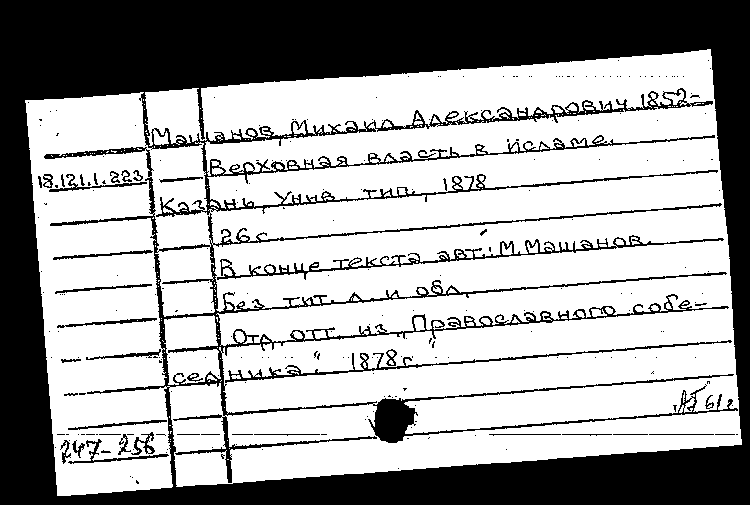 Машанов, Михаил Александрович 1852-
18.121.1.223
Верховная власть в Исламе.
Казань, Унив. тип., 1878
26 с.
В конце текста авт.: М. Машанов.
Без тит. л. и обл.
Отд. отт. из „Православного собе-
седника". 1878 г.
АГ 61 г
247-256